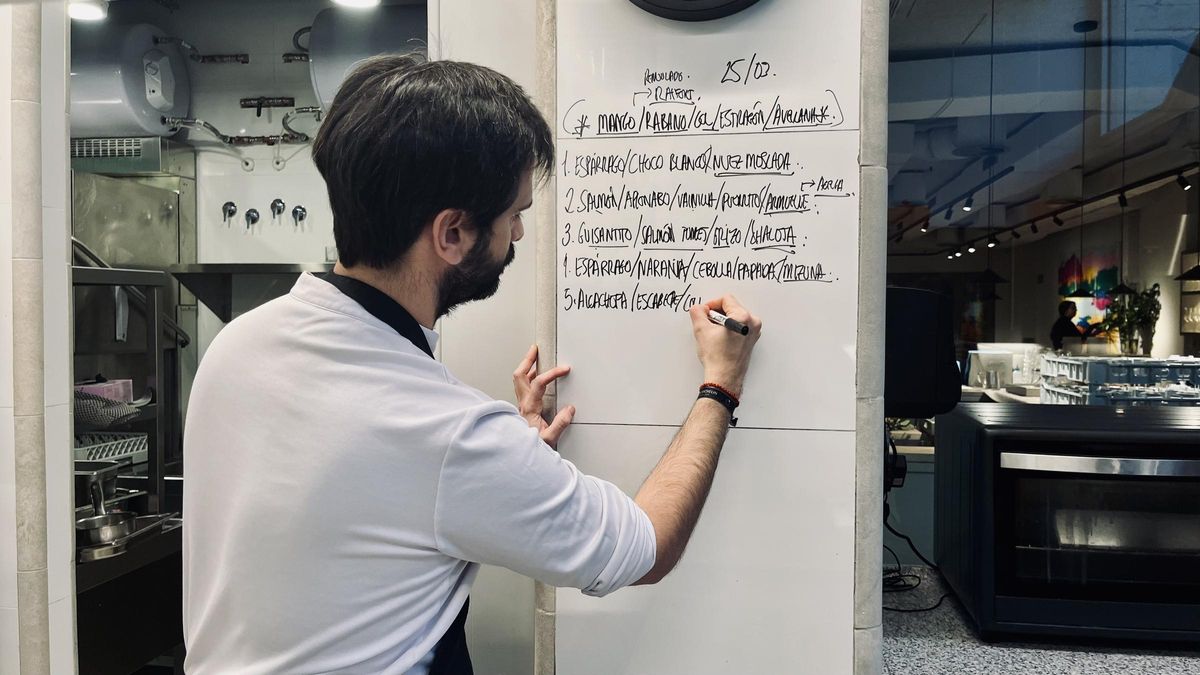 25/03.
RAIFORT.
(* MANGO/RABANO/COL/ESTRAGÓN/AVELLANA*.)
1. ESPÁRRAGO/CHOCO BLANCO/NUEZ MOSCADA.
2. SALMÓN/APIONABO/VAINILLA/PEPINITO/
3. GUISANTITO/SALMÓN /ERIZO/SHALOTA.
4. ESPÁRRAGO/NARANJA/CEBOLLA/PAPADA/MIZUNA.
5. ALCACHOFA/ESCABECHE/CO